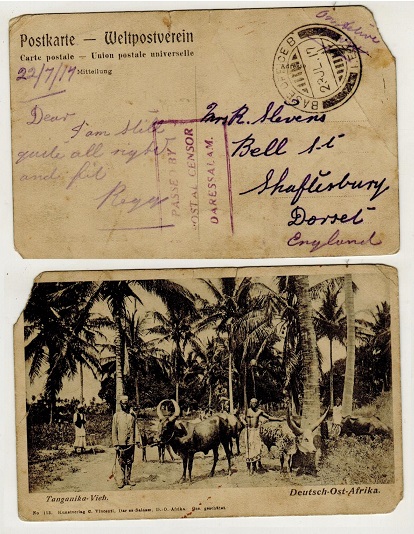 Postkarte — Weltpostverein
Carte postale — Union postale universelle
22/7/17 Mitteilung
On Active
BASE OFFICE B
22 JUL 17
Dear
I am still
quite all right
and fit
Regg
PASSED BY
POSTAL CENSOR
DARESSALAM.
Mrs R. Stevens
Bell St
Shaftesbury
Dorset
England
Tanganika-Vieh.
Deutsch-Ost-Afrika.
No 113. Kunstverlag C. Vincenti, Dar es-Salaam, D.-O. Afrika. Ges. geschützt.